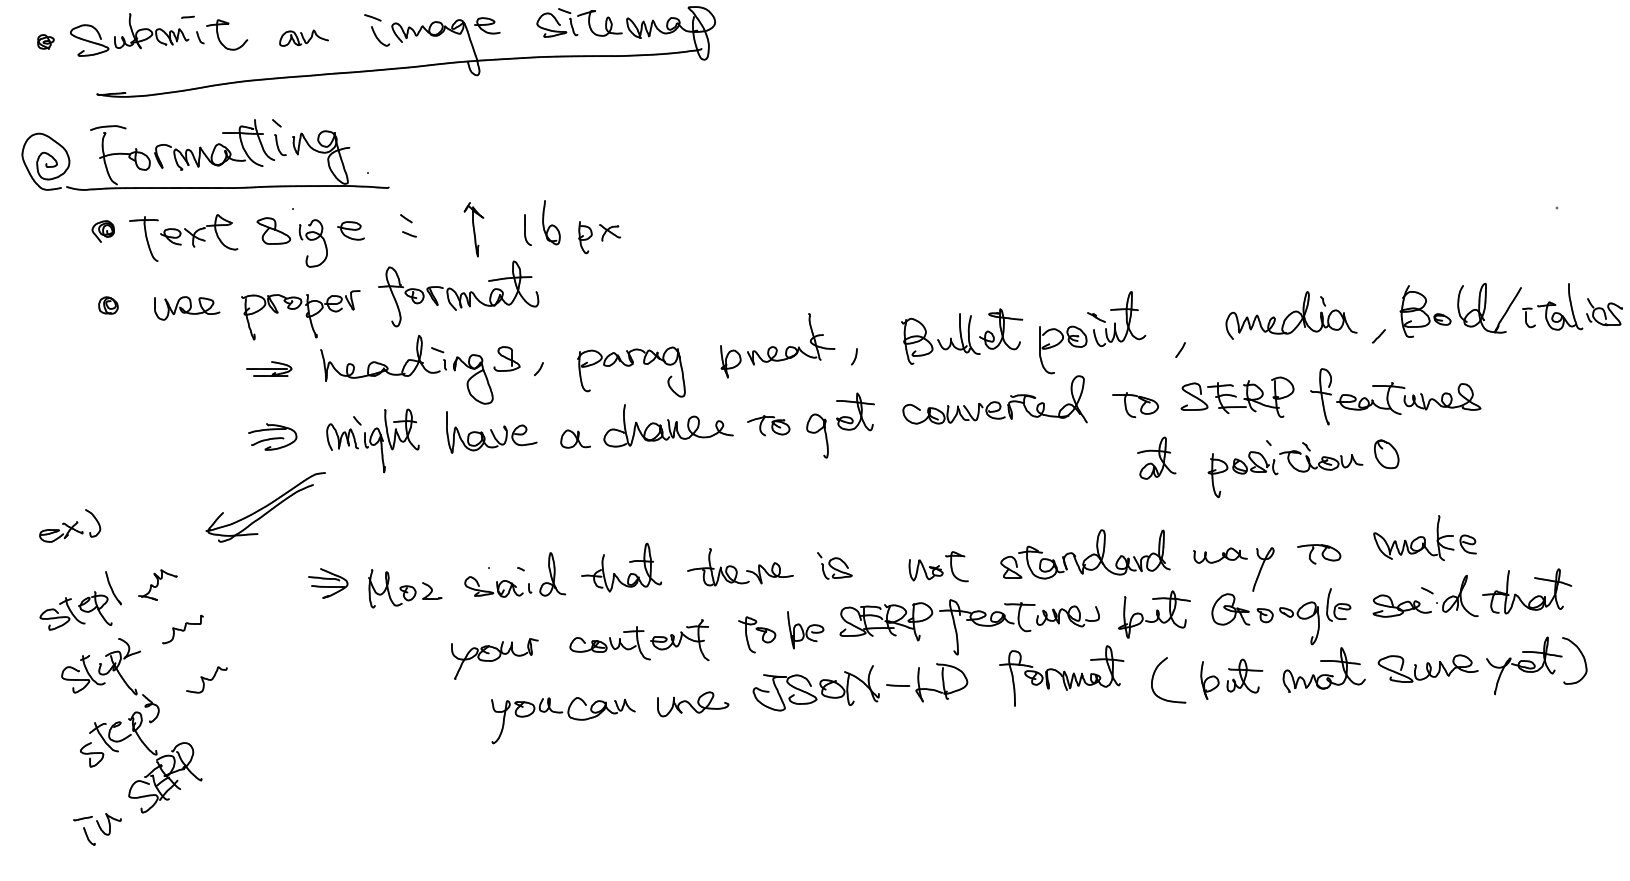 • Submit an image sitemap
@ Formatting
• Text size : ↑ 16px
• use proper format
⇒ headings, parag break, Bullet point, media, Bold/italics
⇒ might have a chance to get converted to SERP features
at position 0
ex)
step1
step2
step3
in SERP
⇒ Moz said that there is not standard way to make
your content to be SERP features but Google said that
you can use JSON-LD format (but not sure yet)